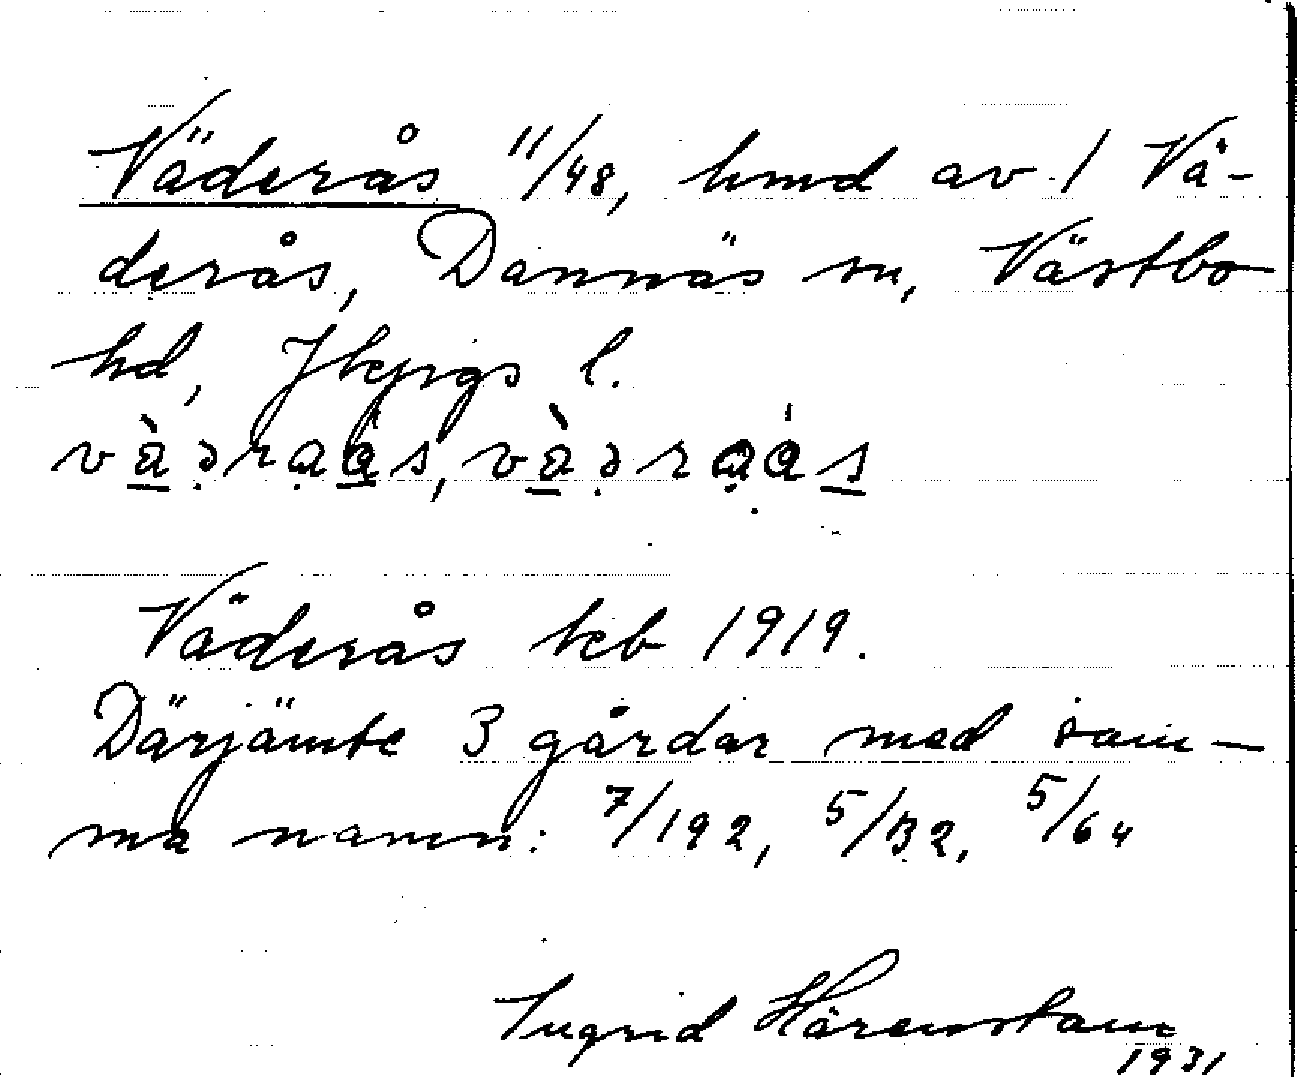 Väderås 11/48, hmd av 1 Vä-
derås, Dannäs sn, Västbo
hd, Jkpgs l.
Väderås keb 1919.
Därjämte 3 gårdar med sam-
ma namn: 7/192, 5/132, 5/64
Ingrid Härenstam
1931